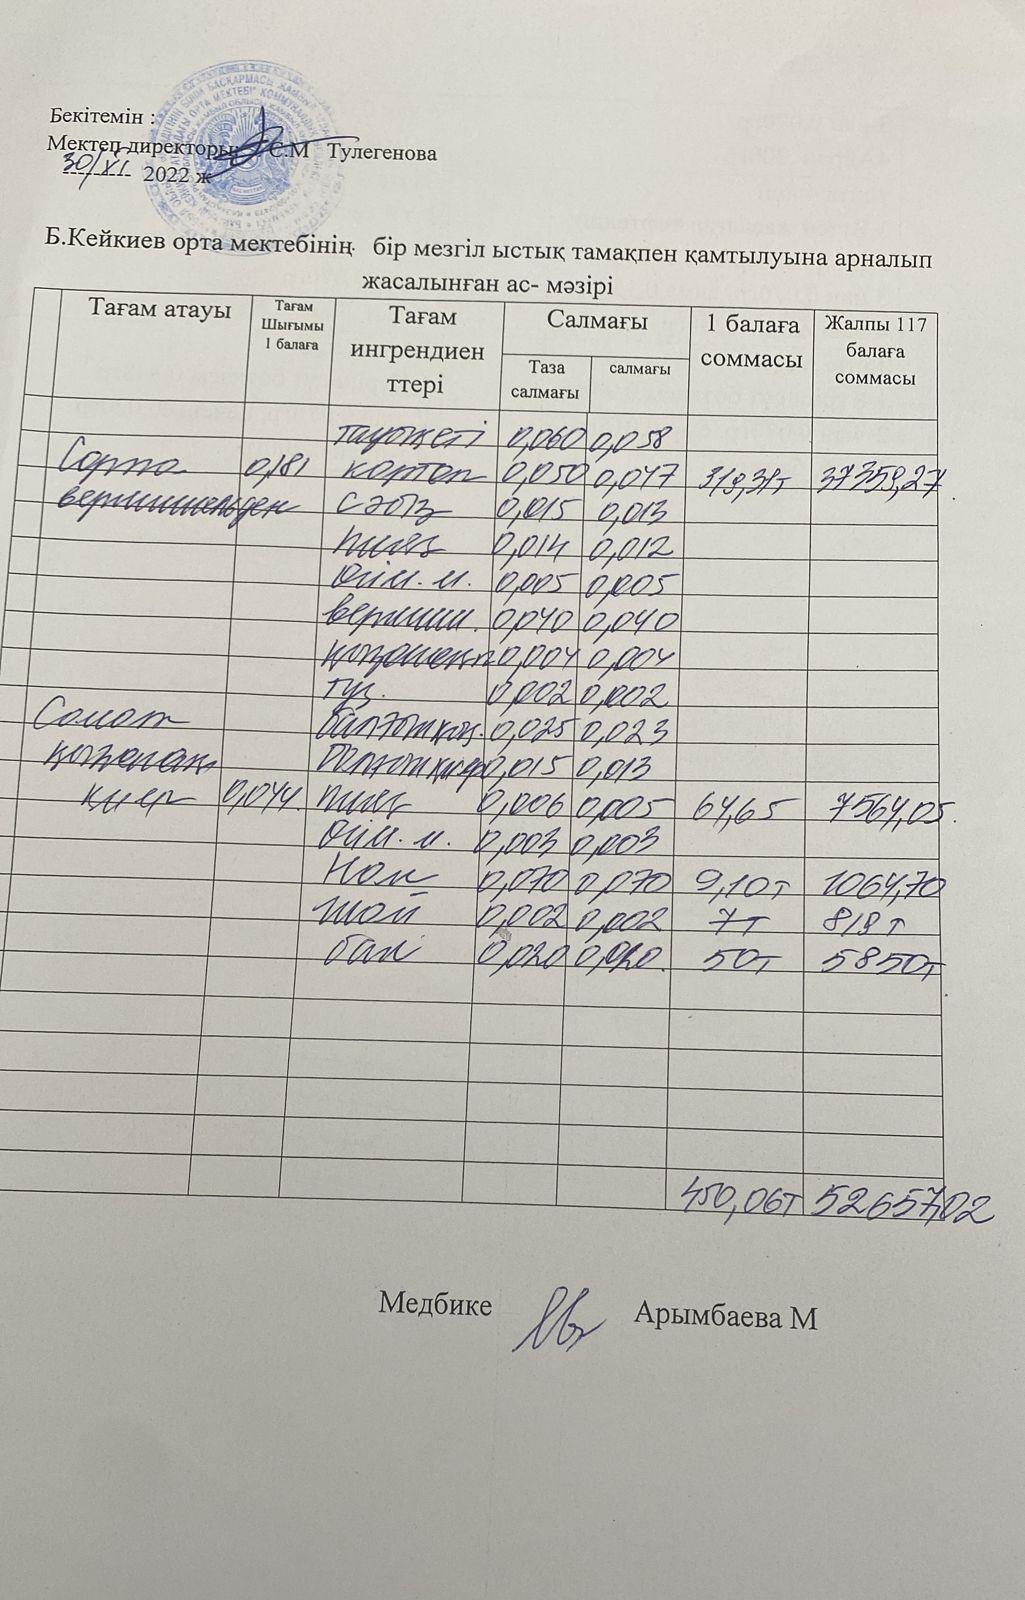 Бекітемін :
Мектеп директоры С.М Тулегенова
30/XI 2022 ж
Б.Кейкиев орта мектебінің бір мезгіл ыстық тамақпен қамтылуына арналып
жасалынған ас- мәзірі
Тағам атауы Тағам Шығымы 1 балаға Тағам ингрендиен ттері Салмағы 1 балаға соммасы Жалпы 117 балаға соммасы
Таза салмағы салмағы
тауықеті 0,060 0,058
Сорпа 0,181 картоп 0,050 0,047 319,31т 37359,27
вермишельден сәбіз 0,015 0,013
пияз 0,014 0,012
өсім. м. 0,005 0,005
вермиш. 0,040 0,040
0,004 0,004
тұз. 0,002 0,002
Салат 0,025 0,023
0,015 0,013
қияр 0,044. пияз 0,006 0,005 64,65 7564,05.
өсім. м. 0,003 0,003
Нан 0,070 0,070 9,10т 1064,70
шай 0,002 0,002 7т 819т
бал 0,020 0,020. 50т 5850т
450,06т 52657,02
Медбике Арымбаева М